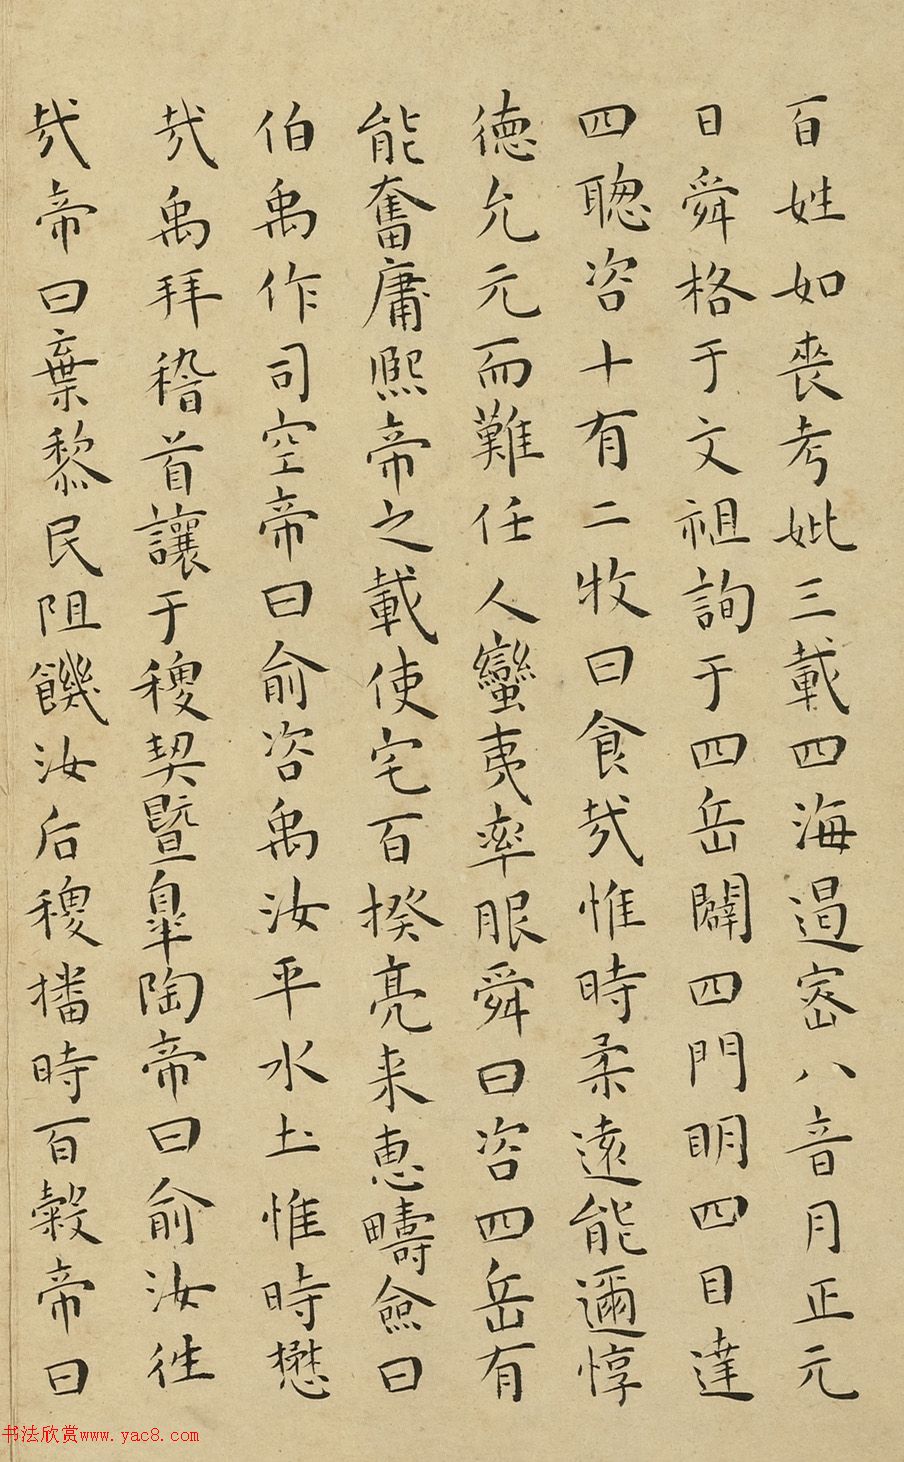 百姓如喪考妣三載四海遏密八音月正元
日舜格于文祖詢于四岳闢四門明四目達
四聰咨十有二牧曰食哉惟時柔遠能邇惇
德允元而難任人蠻夷率服舜曰咨四岳有
能奮庸熙帝之載使宅百揆亮来惠疇僉曰
伯禹作司空帝曰俞咨禹汝平水土惟時懋
哉禹拜稽首讓于稷契暨皐陶帝曰俞汝往
哉帝曰棄黎民阻饑汝后稷播時百穀帝曰
书法欣赏www.yac8.com